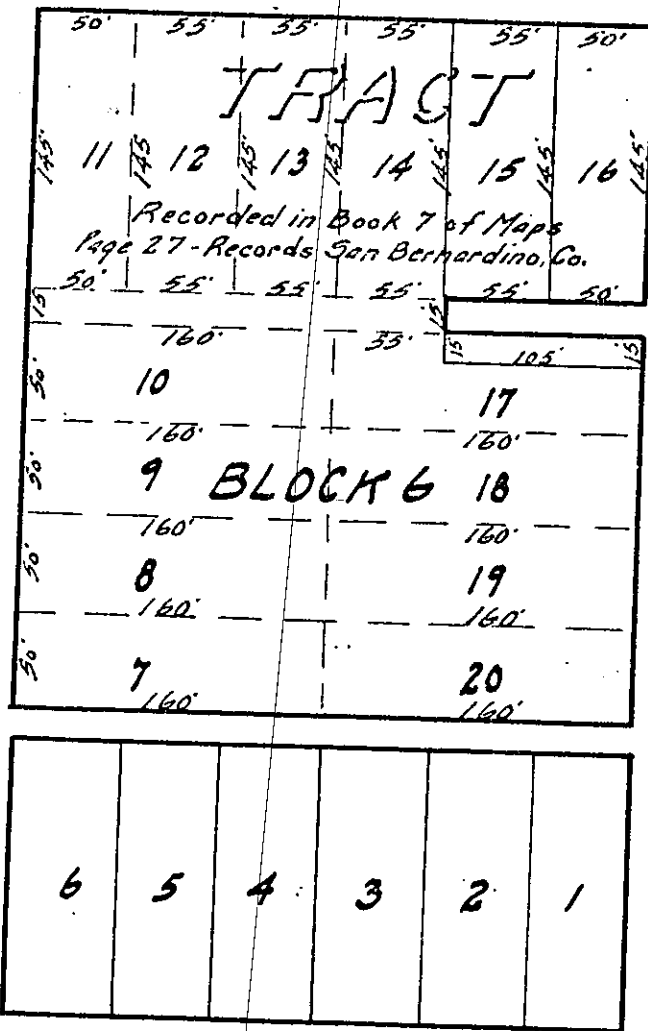 50' 55' 55' 55' 55' 50'
TRACT
145' 11 145 12 145' 13 145' 14 145' 15 145' 16 145'
Recorded in Book 7 of Maps
Page 27 - Records San Bernardino, Co.
50' 55' 55' 55' 55' 50'
15 15
160' 55' 15 105' 15
50' 10 17
160' 160'
50' 9 BLOCK 6 18
160' 160'
50' 8 19
160' 160'
50' 7 20
160' 160'
6 5 4 3 2 1